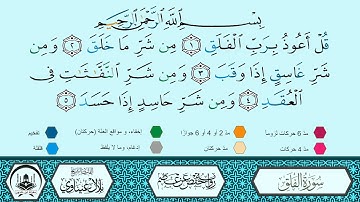 بِسْمِ ٱللَّهِ ٱلرَّحْمَٰنِ ٱلرَّحِيمِ
قُلْ أَعُوذُ بِرَبِّ ٱلْفَلَقِ ١ مِن شَرِّ مَا خَلَقَ ٢ وَمِن
شَرِّ غَاسِقٍ إِذَا وَقَبَ ٣ وَمِن شَرِّ ٱلنَّفَّٰثَٰتِ فِى
ٱلْعُقَدِ ٤ وَمِن شَرِّ حَاسِدٍ إِذَا حَسَدَ ٥
مدّ 6 حركات لزوماً مدّ 2 أو 4 أو 6 جوازاً إخفاء، ومواقع الغنّة (حركتان) تفخيم
مدّ 4 حركات مدّ حركتان إدغام، وما لا يلفظ قلقلة
سُورَةُ الفَلَقِ